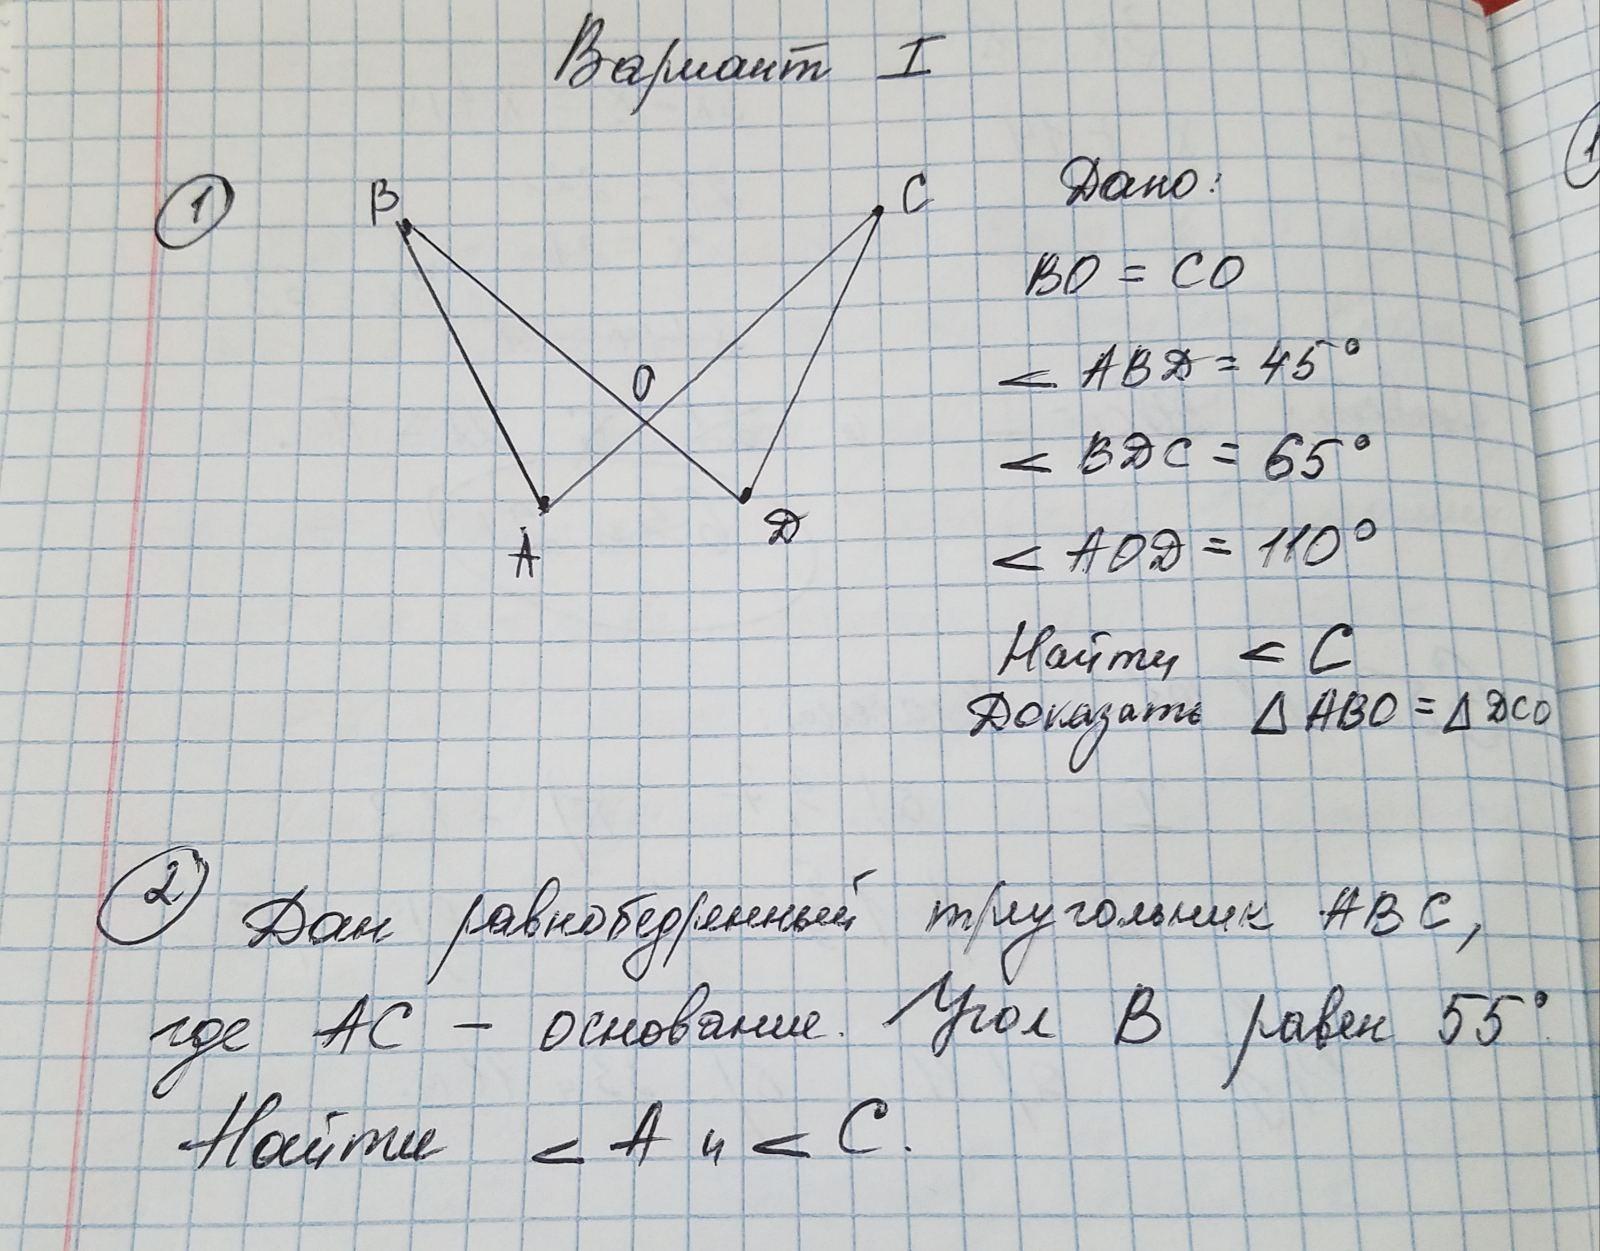 Вариант I
1
B
C
O
A
D
Дано:
BO = CO
< ABD = 45°
< BDC = 65°
< AOD = 110°
Найти < C
Доказать Δ ABO = Δ DCO
2 Дан равнобедренный треугольник ABC,
где AC – основание. Угол B равен 55°.
Найти < A и < C.
1